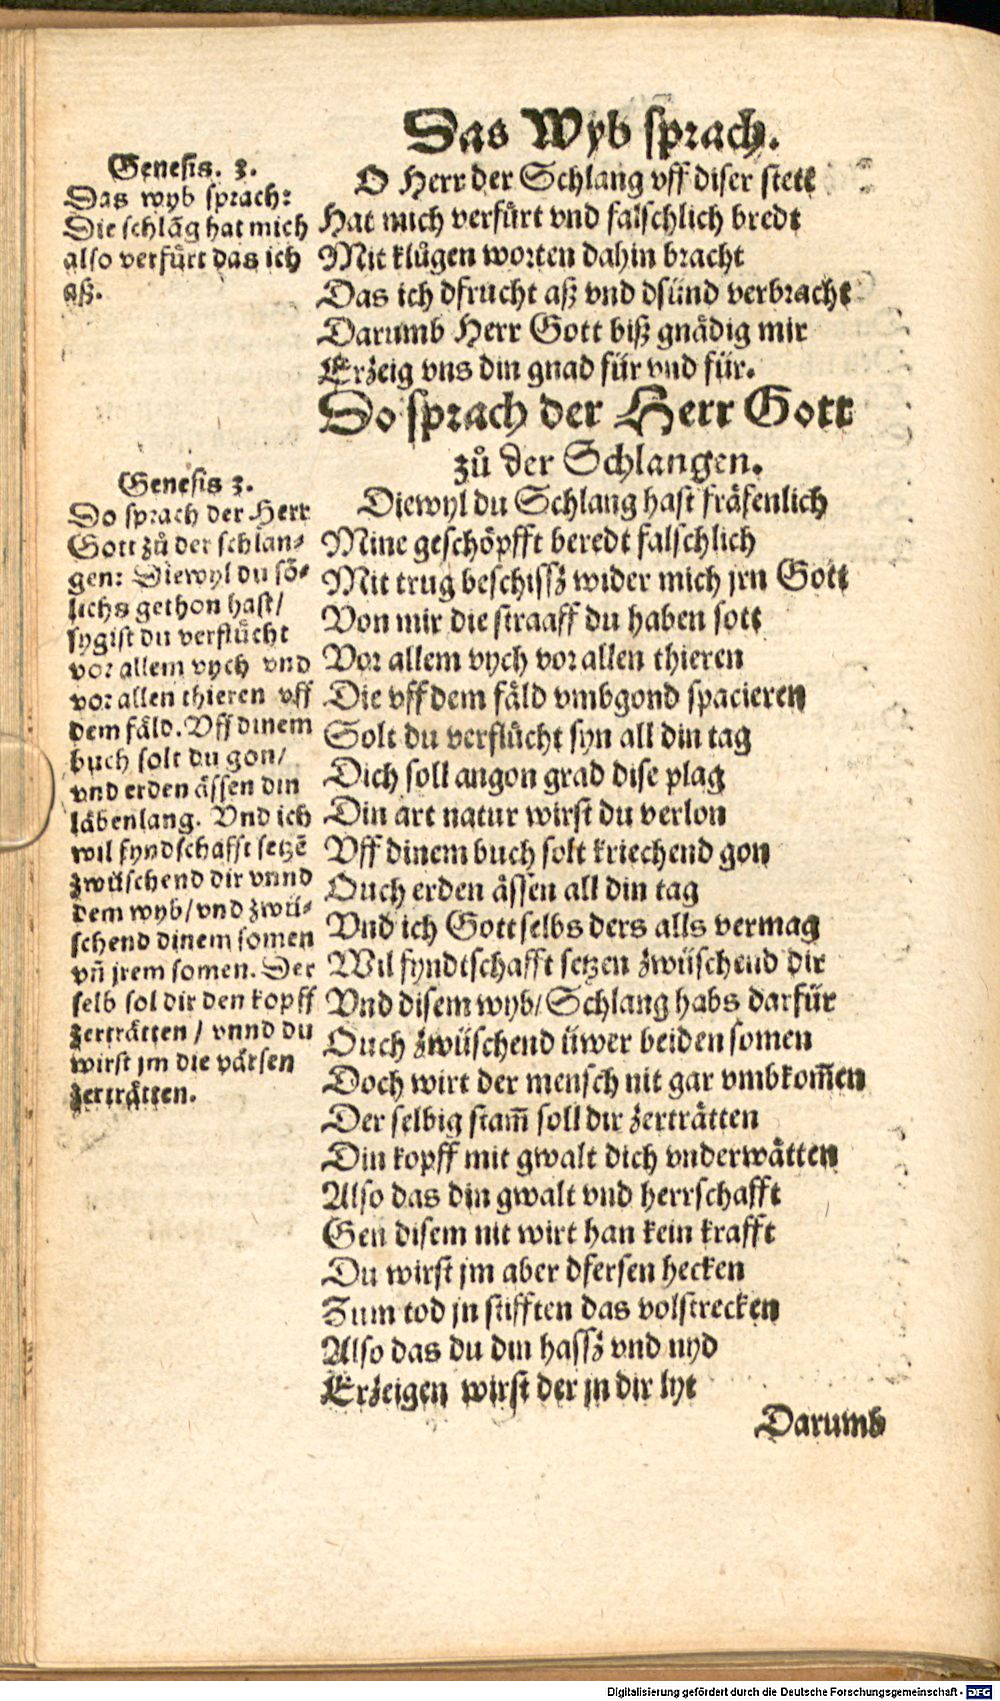 Das Wyb sprach.
Genesis. 3.
Das wyb sprach:
Die schlāg hat mich
also verfürt das ich
aß.
O Herr der Schlang vff diser stett
Hat mich verfürt vnd falschlich bredt
Mit klůgen worten dahin bracht
Das ich dfrucht aß vnd dsünd verbracht
Darumb Herr Gott biß gnådig mir
Erzeig vns din gnad für vnd für.
Do sprach der Herr Gott
zů der Schlangen.
Genesis 3.
Do sprach der Herr
Gott zů der schlan⸗
gen: Diewyl du sö⸗
lichs gethon hast/
sygist du verflůcht
vor allem vych vnd
vor allen thieren vff
dem fäld. Vff dinem
buch solt du gon/
vnd erden ässen din
läbenlang. Vnd ich
wil fyndschafft setzē
zwüschend dir vnnd
dem wyb/vnd zwü⸗
schend dinem somen
vñ jrem somen. Der
selb sol dir den kopff
zerträtten / vnnd du
wirst jm die värsen
zerträtten.
Diewyl du Schlang hast fräfenlich
Mine geschöpfft beredt falschlich
Mit trug beschissz wider mich jrn Gott
Von mir die straaff du haben sott
Vor allem vych vor allen thieren
Die vff dem fäld vmbgond spacieren
Solt du verflůcht syn all din tag
Dich soll angon grad dise plag
Din art natur wirst du verlon
Vff dinem buch solt kriechend gon
Ouch erden ässen all din tag
Vnd ich Gott selbs ders alls vermag
Wil fyndtschafft setzen zwüschend dir
Vnd disem wyb/Schlang habs darfür
Ouch zwüschend üwer beiden somen
Doch wirt der mensch nit gar vmbkom̄en
Der selbig stam̄ soll dir zerträtten
Din kopff mit gwalt dich vnderwätten
Also das din gwalt vnd herrschafft
Gen disem nit wirt han kein krafft
Du wirst jm aber dfersen hecken
Zum tod jn stifften das volstrecken
Also das du din hassz vnd nyd
Erzeigen wirst der jn dir lyt
Darumb
Digitalisierung gefördert durch die Deutsche Forschungsgemeinschaft - DFG